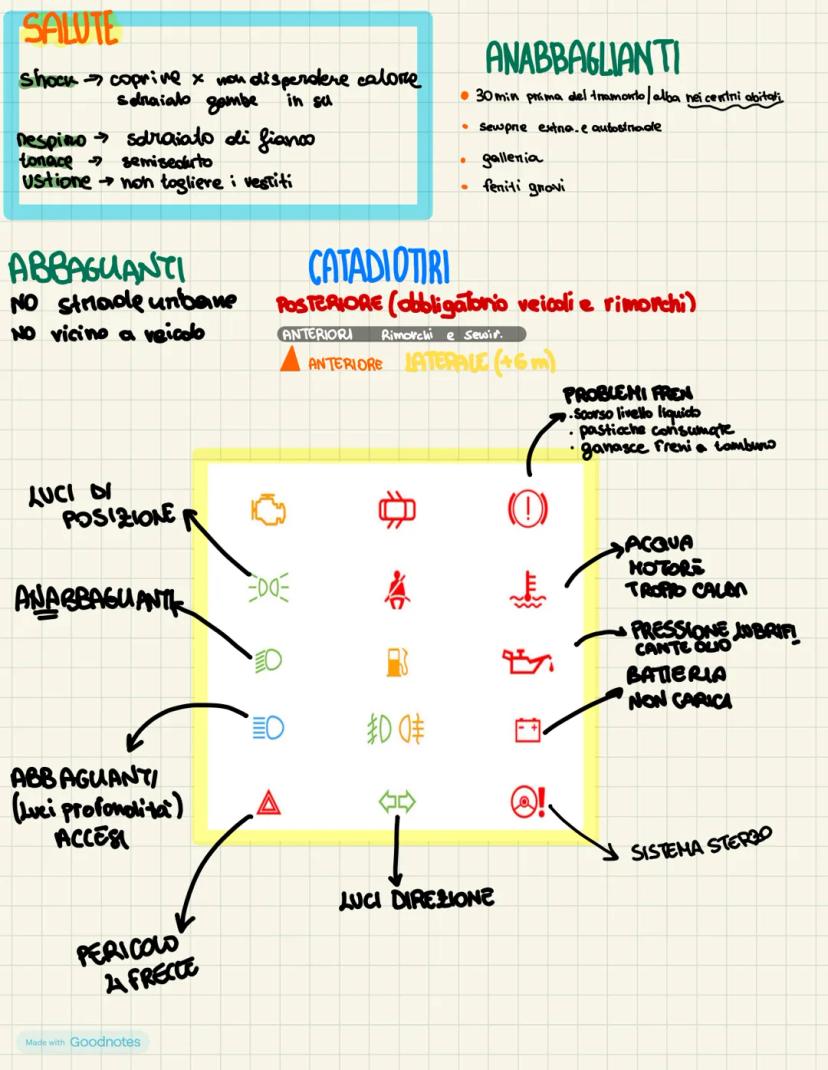 SALUTE
Shock → coprire x non disperdere calore
sdraiato gambe in su
Respiro → sdraiato di fianco
torace → semiseduto
Ustione → non togliere i vestiti
ANABBAGLIANTI
• 30 min prima del tramonto/alba nei centri abitati
• sempre extra. e autostrade
• galleria
• feriti gravi
ABBAGLIANTI
NO strade urbane
NO vicino a veicolo
CATADIOTIRI
POSTERIORE (obbligatorio veicoli e rimorchi)
ANTERIORI Rimorchi e semir.
ANTERIORE LATERALE (+6 m)
PROBLEMI FRENI
• scarso livello liquido
• pasticche consumate
• ganasce freni a tamburo
LUCI DI
POSIZIONE
ANABBAGLIANTI
ACQUA
MOTORE
TROPPO CALDA
PRESSIONE LUBRIFI
CANTE OLIO
BATTERIA
NON CARICA
ABBAGLIANTI
(Luci profondità)
ACCESI
SISTEMA STERZO
LUCI DIREZIONE
PERICOLO
4 FRECCE
Made with Goodnotes